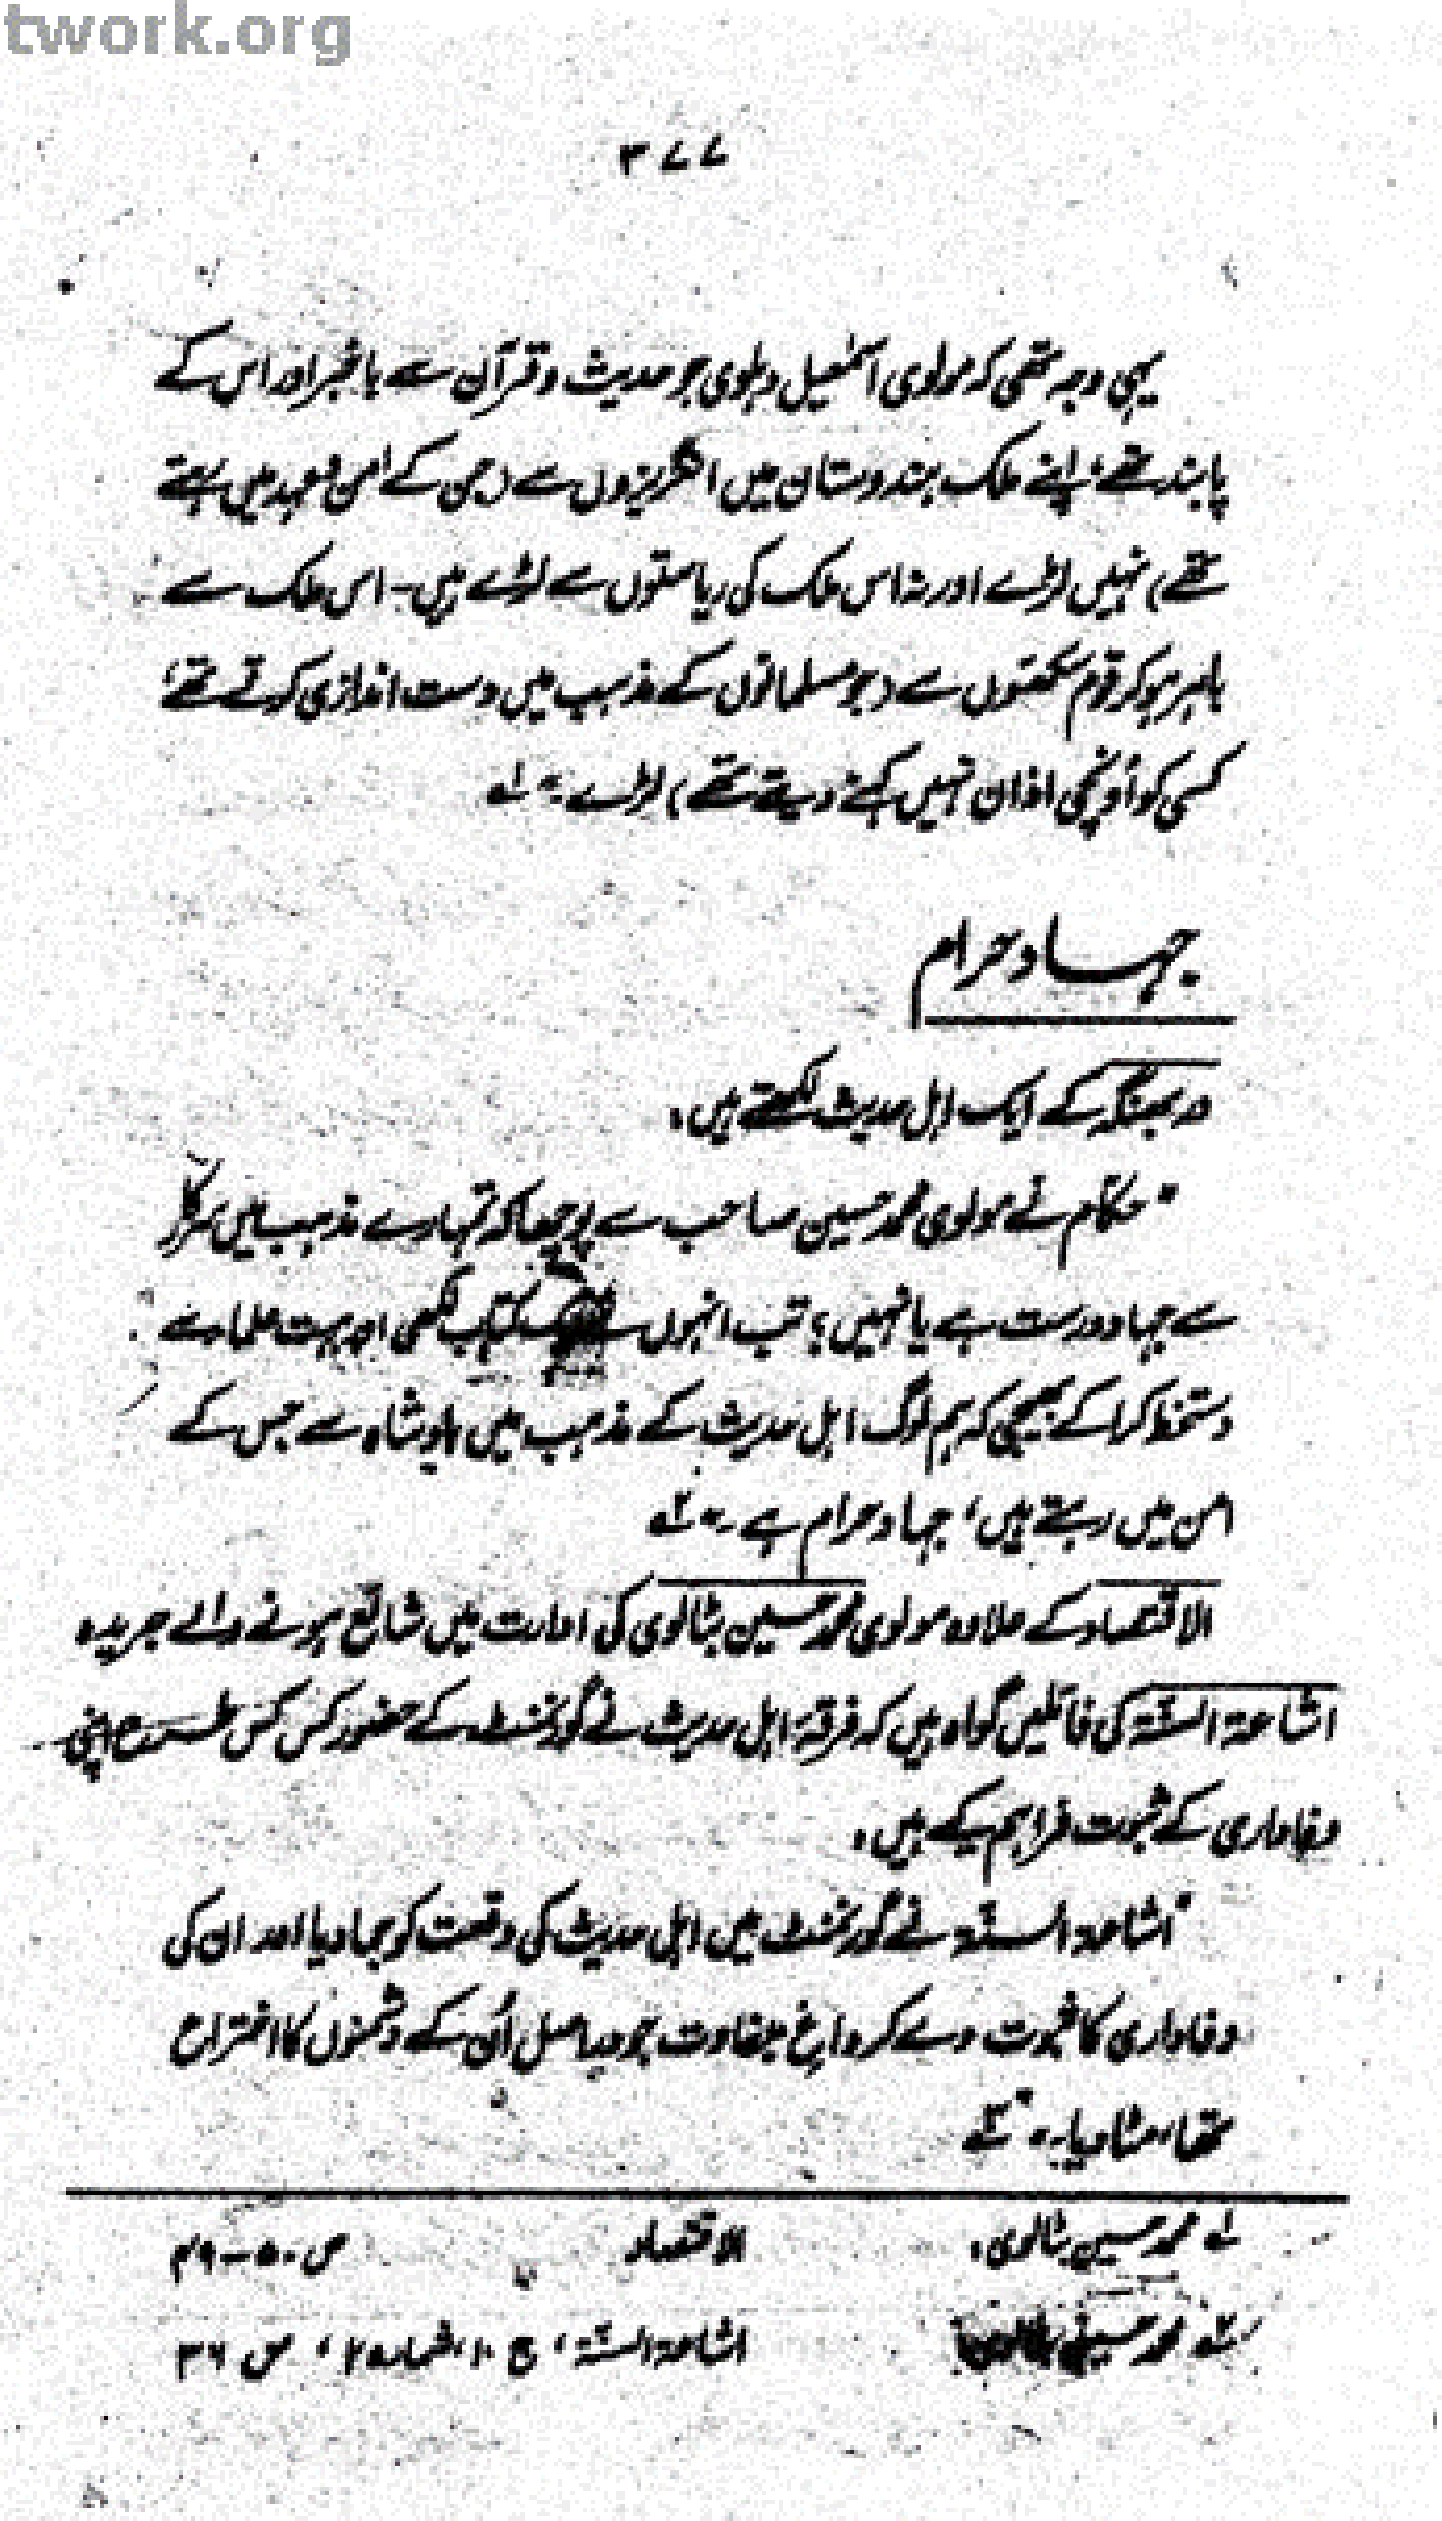 twork.org
۳۷۷
یہی وجہ تھی کہ مولوی اسمٰعیل دہلوی جو حدیث و قرآن سے باخبر اور اس کے
پابند تھے، اپنے ملک ہندوستان میں انگریزوں سے (جن کے امن و عہد میں رہتے
تھے) نہیں لڑے اور نہ اس ملک کی ریاستوں سے لڑے ہیں۔ اس ملک سے
باہر ہو کر قوم سکھوں سے (جو مسلمانوں کے مذہب میں دست اندازی کرتے تھے،
کسی کو اُونچی اذان نہیں کہنے دیتے تھے) لڑے۔" لے
جہاد حرام
دربھنگہ کے ایک اہل حدیث لکھتے ہیں:
"حکام نے مولوی محمد حسین صاحب سے پوچھا کہ تمہارے مذہب میں سرکار
سے جہاد درست ہے یا نہیں؟ تب انہوں نے کتاب لکھی اور بہت علماء سے
دستخط کرا کے بھیجی کہ ہم لوگ اہل حدیث کے مذہب میں بادشاہ سے جس کے
امن میں رہتے ہیں، جہاد حرام ہے۔" ۲ے
الاقتصاد کے علاوہ مولوی محمد حسین بٹالوی کی ادارت میں شائع ہونے والے جریدہ
اشاعۃ السنۃ کی فائلیں گواہ ہیں کہ فرقہ اہل حدیث نے گورنمنٹ کے حضور کس کس طرح اپنی
وفاداری کے ثبوت فراہم کیے ہیں:
"اشاعۃ السنۃ نے گورنمنٹ میں اہل حدیث کی وقعت کو جما دیا اور ان کی
وفاداری کا ثبوت دے کر داغ بغاوت جو دراصل اُن کے دشمنوں کا افتراء
تھا، مٹا دیا۔" ۳ے
لے محمد حسین بٹالوی: الاقتصاد ص ۵۰-۴۹
۲ے محمد حسین بٹالوی: اشاعۃ السنۃ، ج ۱۰، شمارہ ۲، ص ۳۶